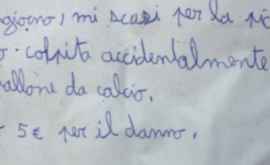 giorno, mi scusi per la pi
o. colpita accidentalmente
pallone da calcio.
5€ per il danno.